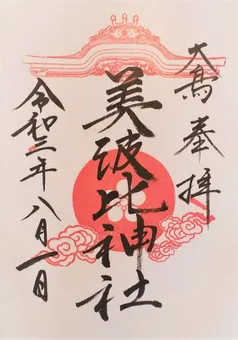 大髙 奉拝
美波比神社
令和二年八月一日